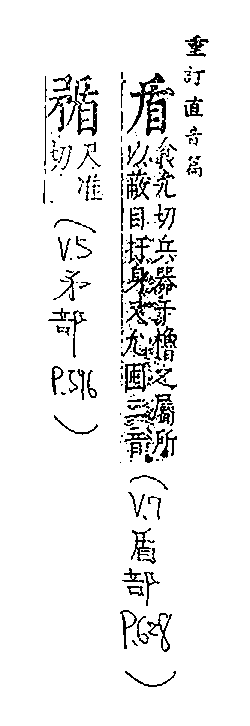 重訂直音篇
盾
食允切兵器干櫓之屬所
以蔽目扞身又允囤二音
(V.7盾部P.628)
尺准
切
(V.5矛部P.596)